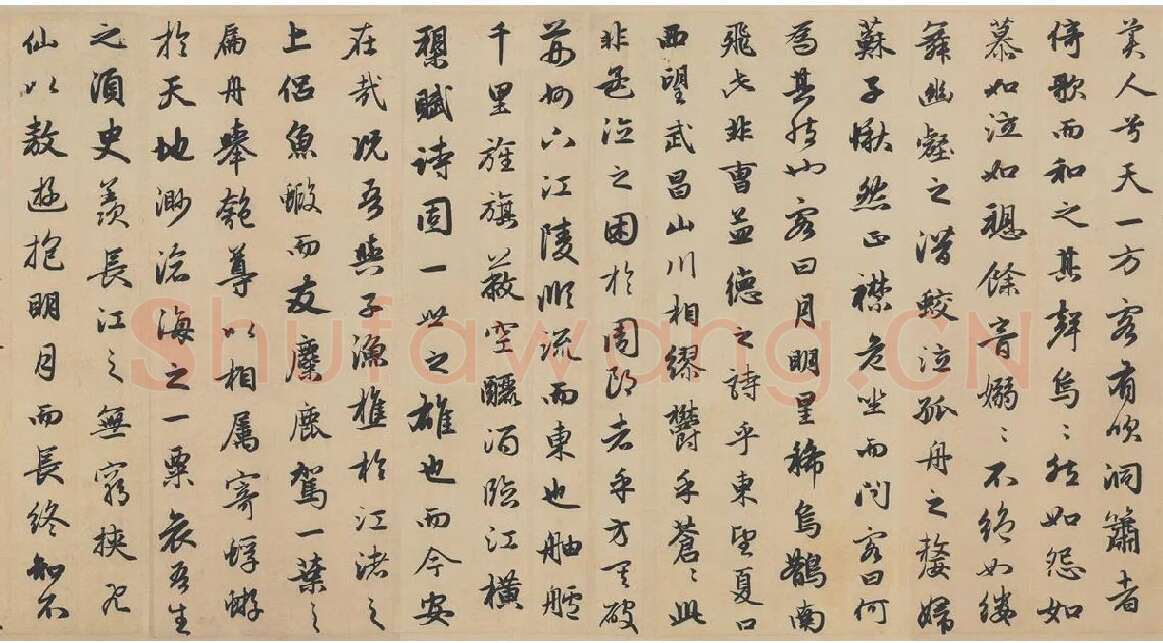 美人兮天一方客有吹洞簫者
倚歌而和之其聲烏〻然如怨如
慕如泣如愬餘音嫋〻不絕如縷
舞幽壑之潛蛟泣孤舟之嫠婦
蘇子愀然正襟危坐而問客曰何
為其然也客曰月明星稀烏鵲南
飛此非曹孟德之詩乎東望夏口
西望武昌山川相繆鬱乎蒼〻此
非孟德之困於周郎者乎方其破
荊州下江陵順流而東也舳艫
千里旌旗蔽空釃酒臨江橫
槊賦詩固一世之雄也而今安
在哉況吾與子漁樵於江渚之
上侶魚蝦而友麋鹿駕一葉之
扁舟舉匏尊以相屬寄蜉蝣
於天地渺滄海之一粟哀吾生
之須臾羨長江之無窮挾飛
仙以遨遊抱明月而長終知不
Shufawang.CN